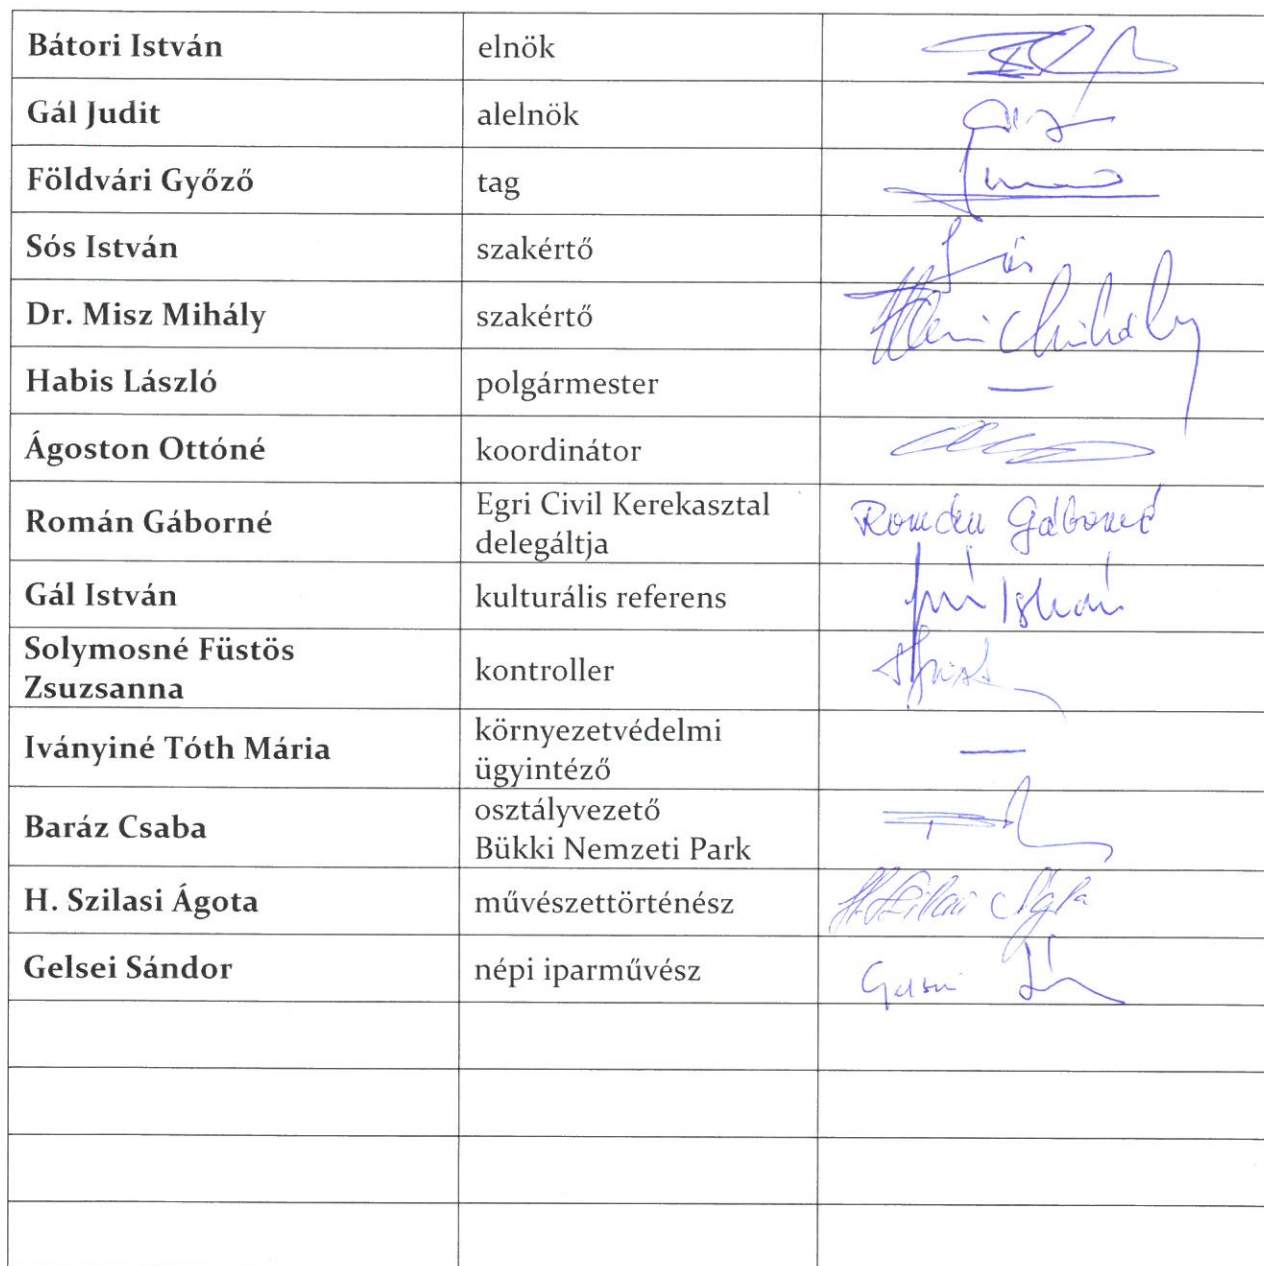 Bátori István elnök
Gál Judit alelnök
Földvári Győző tag
Sós István szakértő
Sós
Dr. Misz Mihály szakértő
Mihály
Habis László polgármester —
Ágoston Ottóné koordinátor
Román Gáborné Egri Civil Kerekasztal
delegáltja
Román Gáborné
Gál István kulturális referens
Gál István
Solymosné Füstös
Zsuzsanna kontroller
Iványiné Tóth Mária környezetvédelmi
ügyintéző —
Baráz Csaba osztályvezető
Bükki Nemzeti Park
H. Szilasi Ágota művészettörténész
H. Szilasi Ágota
Gelsei Sándor népi iparművész
Gelsei